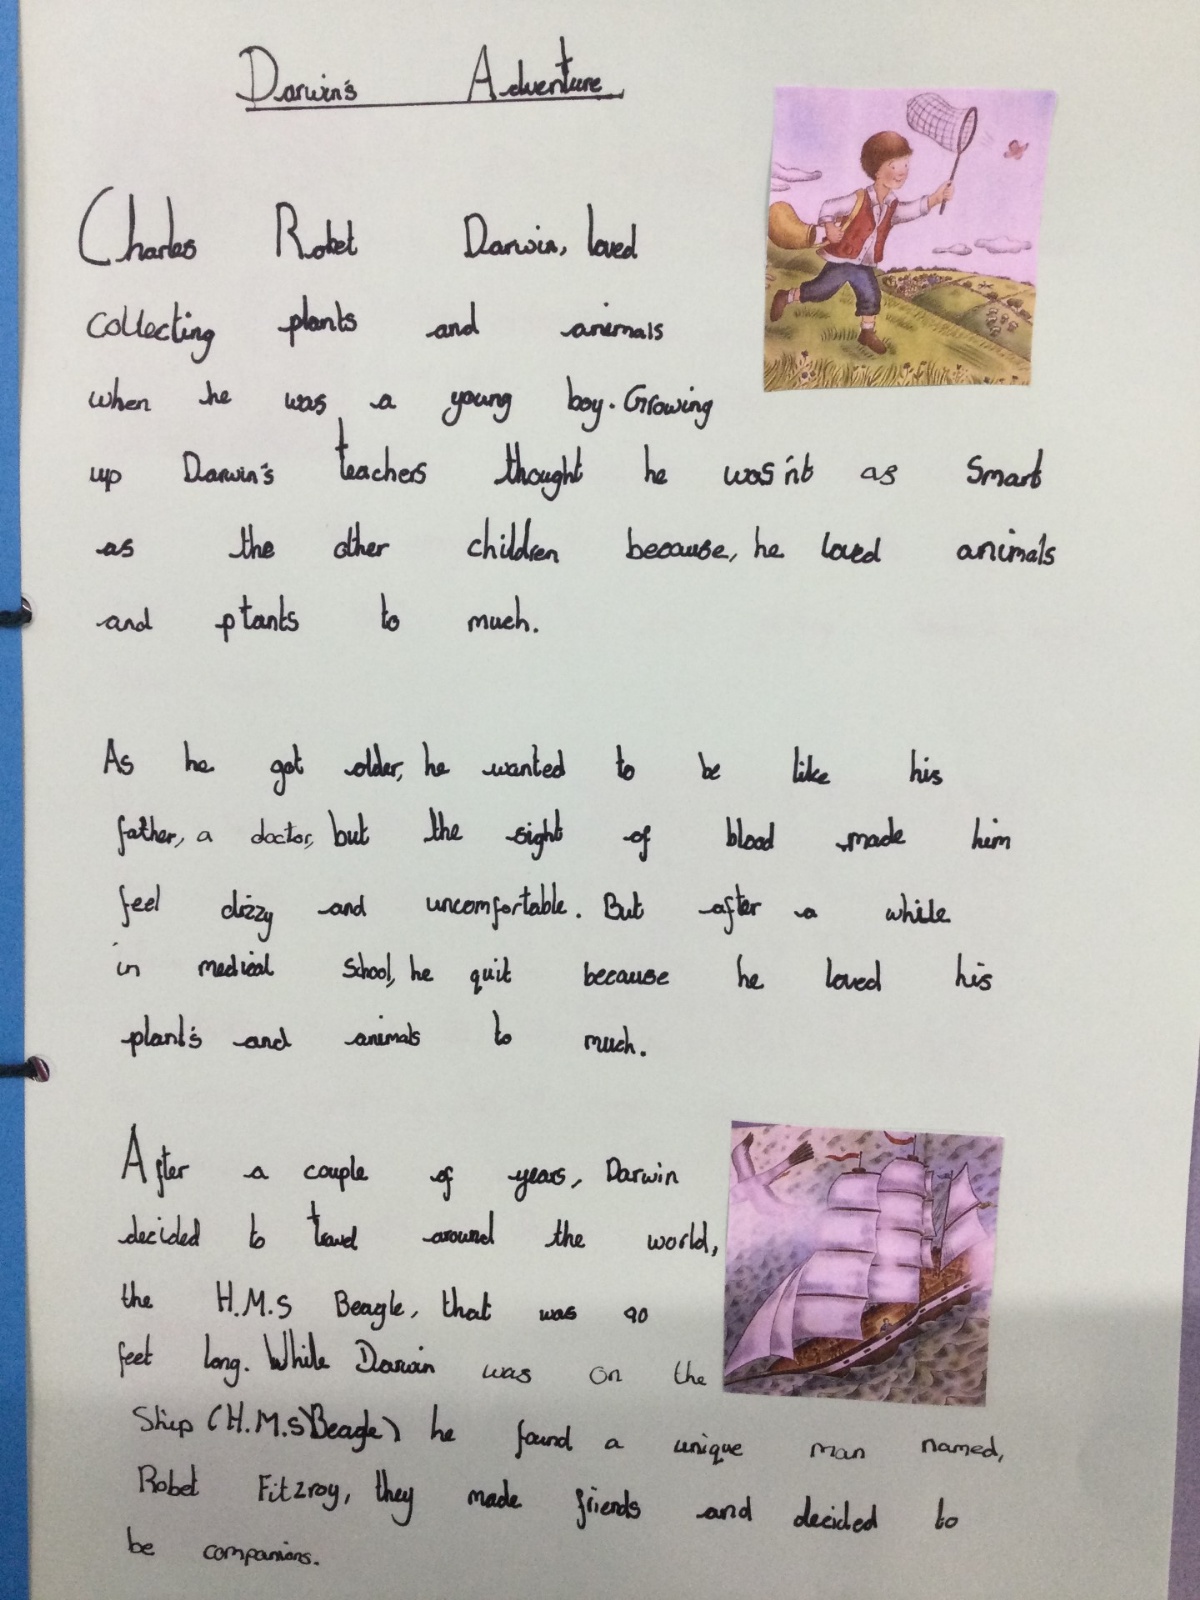 Darwin's Adventure
Charles Robet Darwin, loved
collecting plants and animals
when he was a young boy. Growing
up Darwin's teachers thought he was'nt as Smart
as the other children because, he loved animals
and plants to much.
As he got older, he wanted to be like his
father, a doctor, but the sight of blood made him
feel dizzy and uncomfortable. But after a while
in medical School, he quit because he loved his
plant's and animals to much.
After a couple of years, Darwin
decided to travel around the world,
the H.M.S Beagle, that was 90
feet long. While Darwin was on the
Ship (H.M.S Beagle) he found a unique man named,
Robet Fitzroy, they made friends and decided to
be companions.